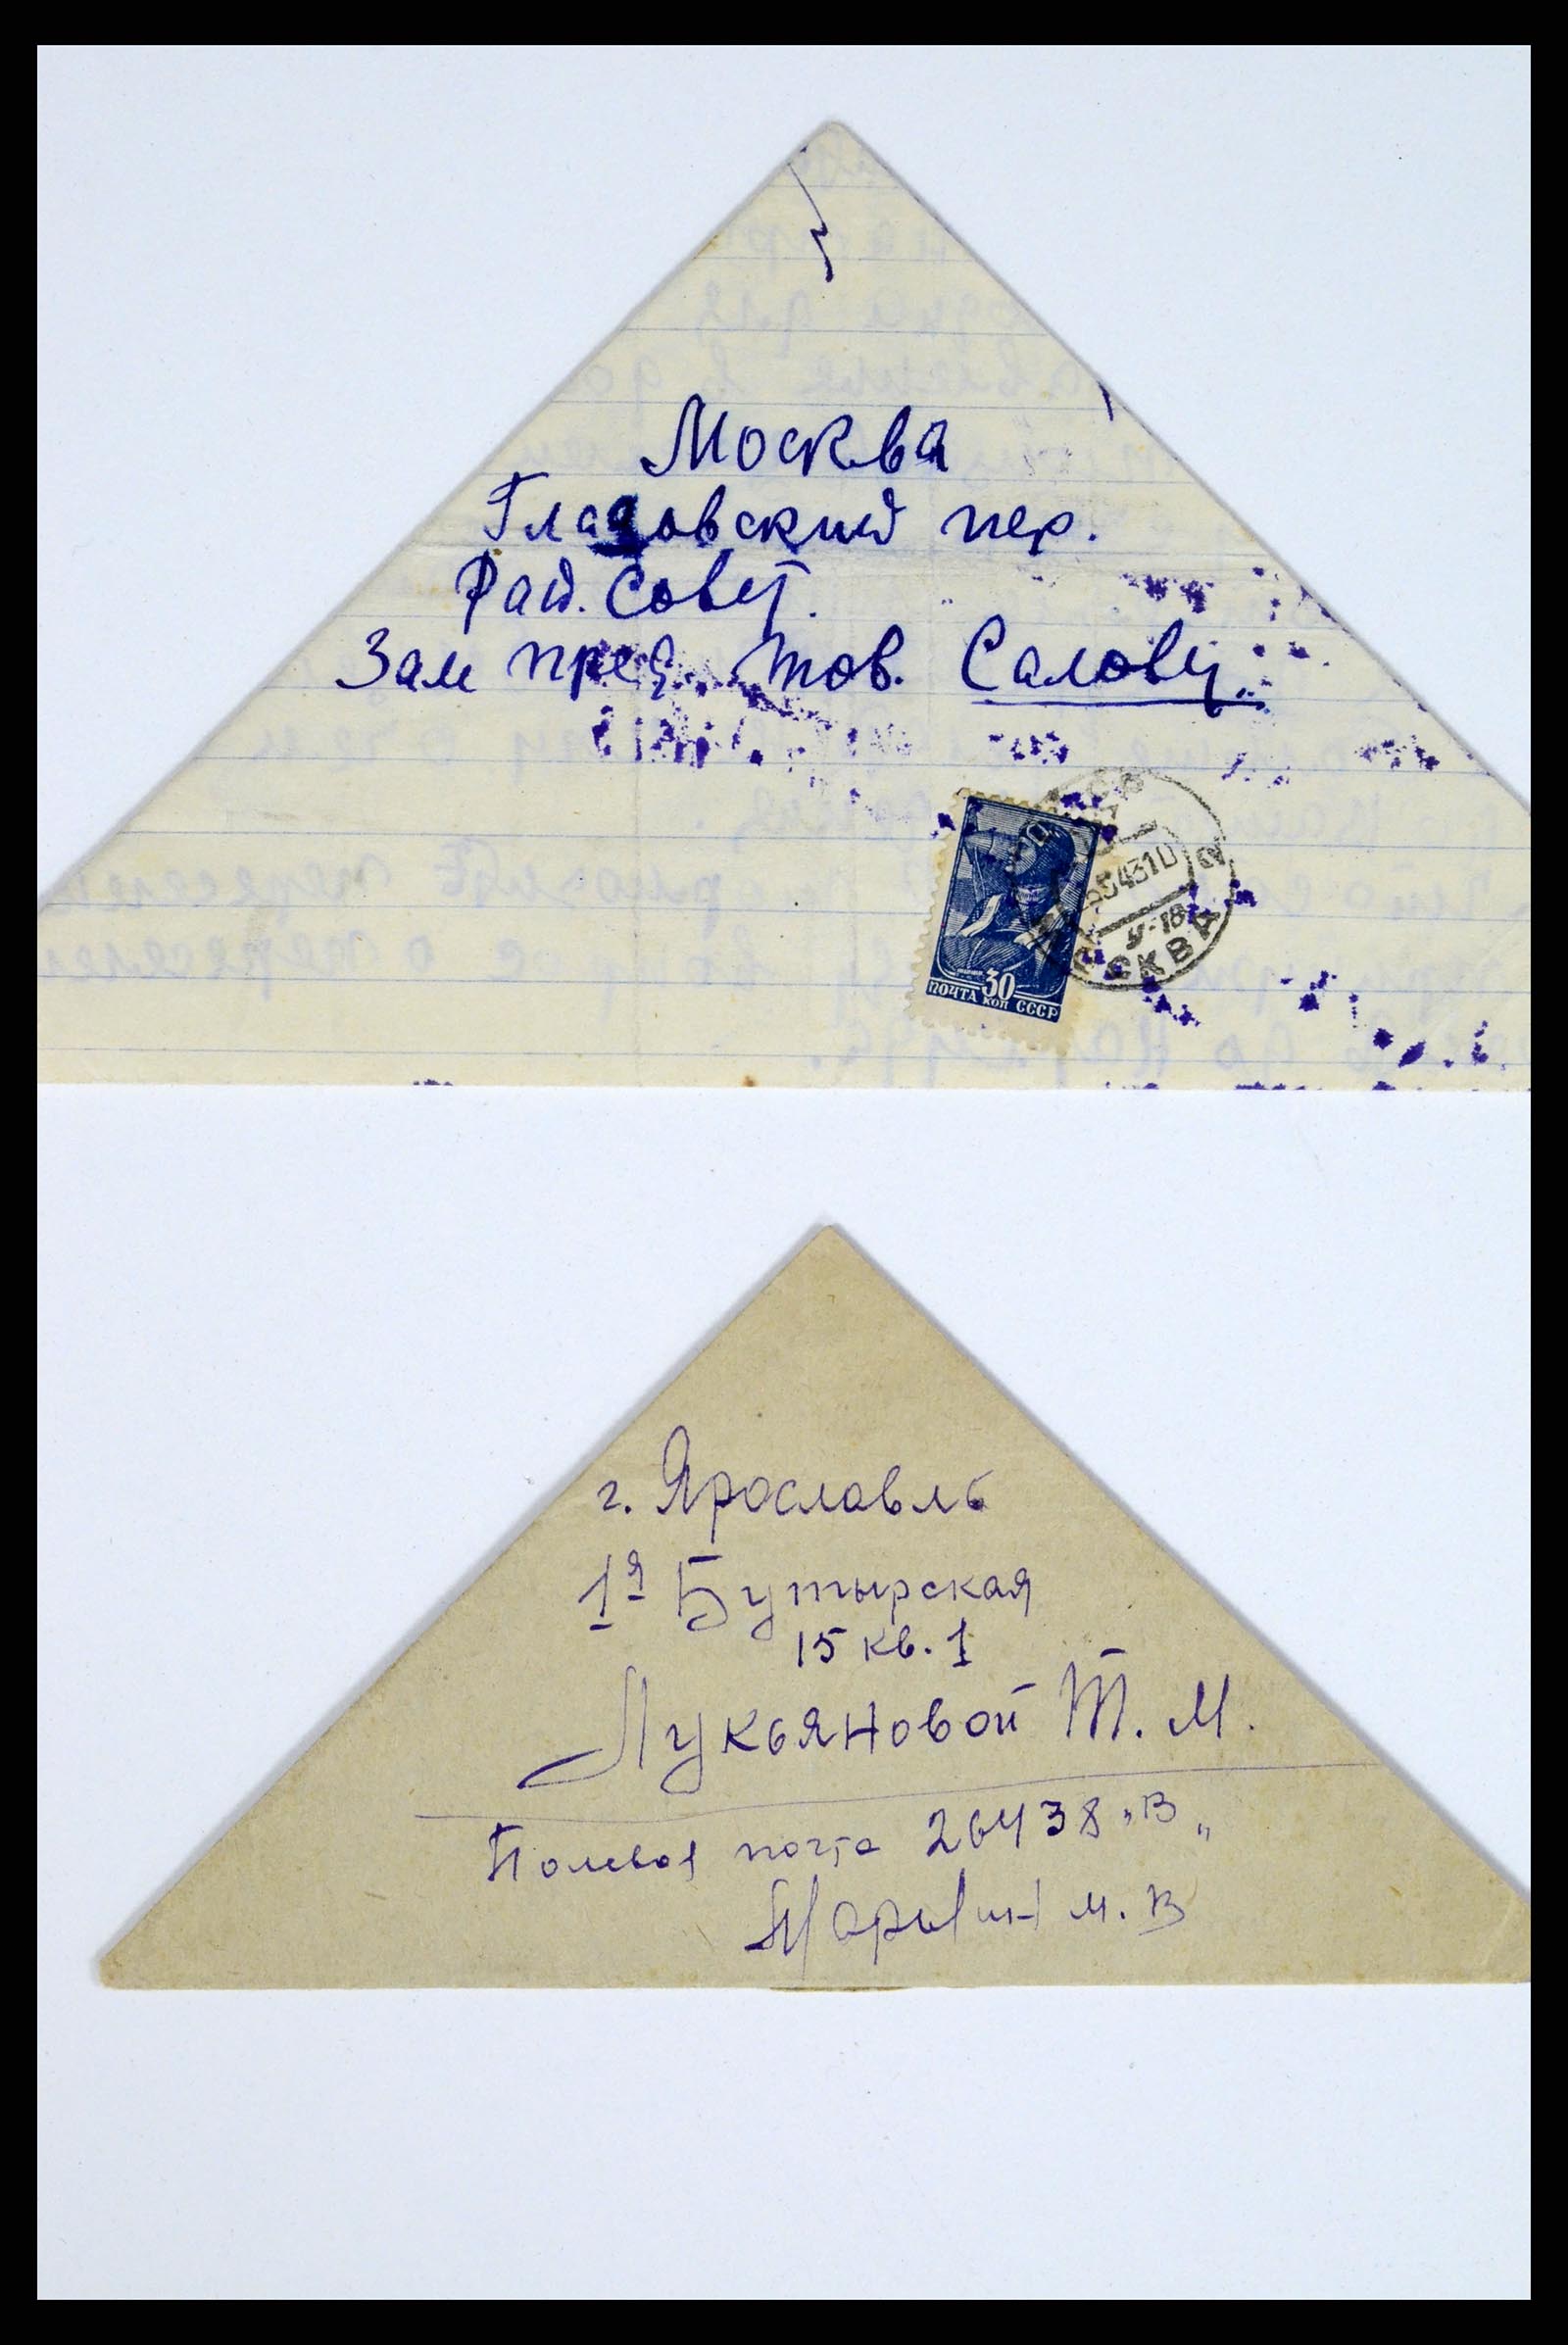 Москва
Глазовский пер.
Рай. Совет.
Зам пред. тов. Салову
ПОЧТА 30 КОП СССР
МОСКВА
г. Ярославль
1я Бутырская
15 кв. 1
Лукьяновой Т. М.
Полевая почта 26438 „В„
М. В